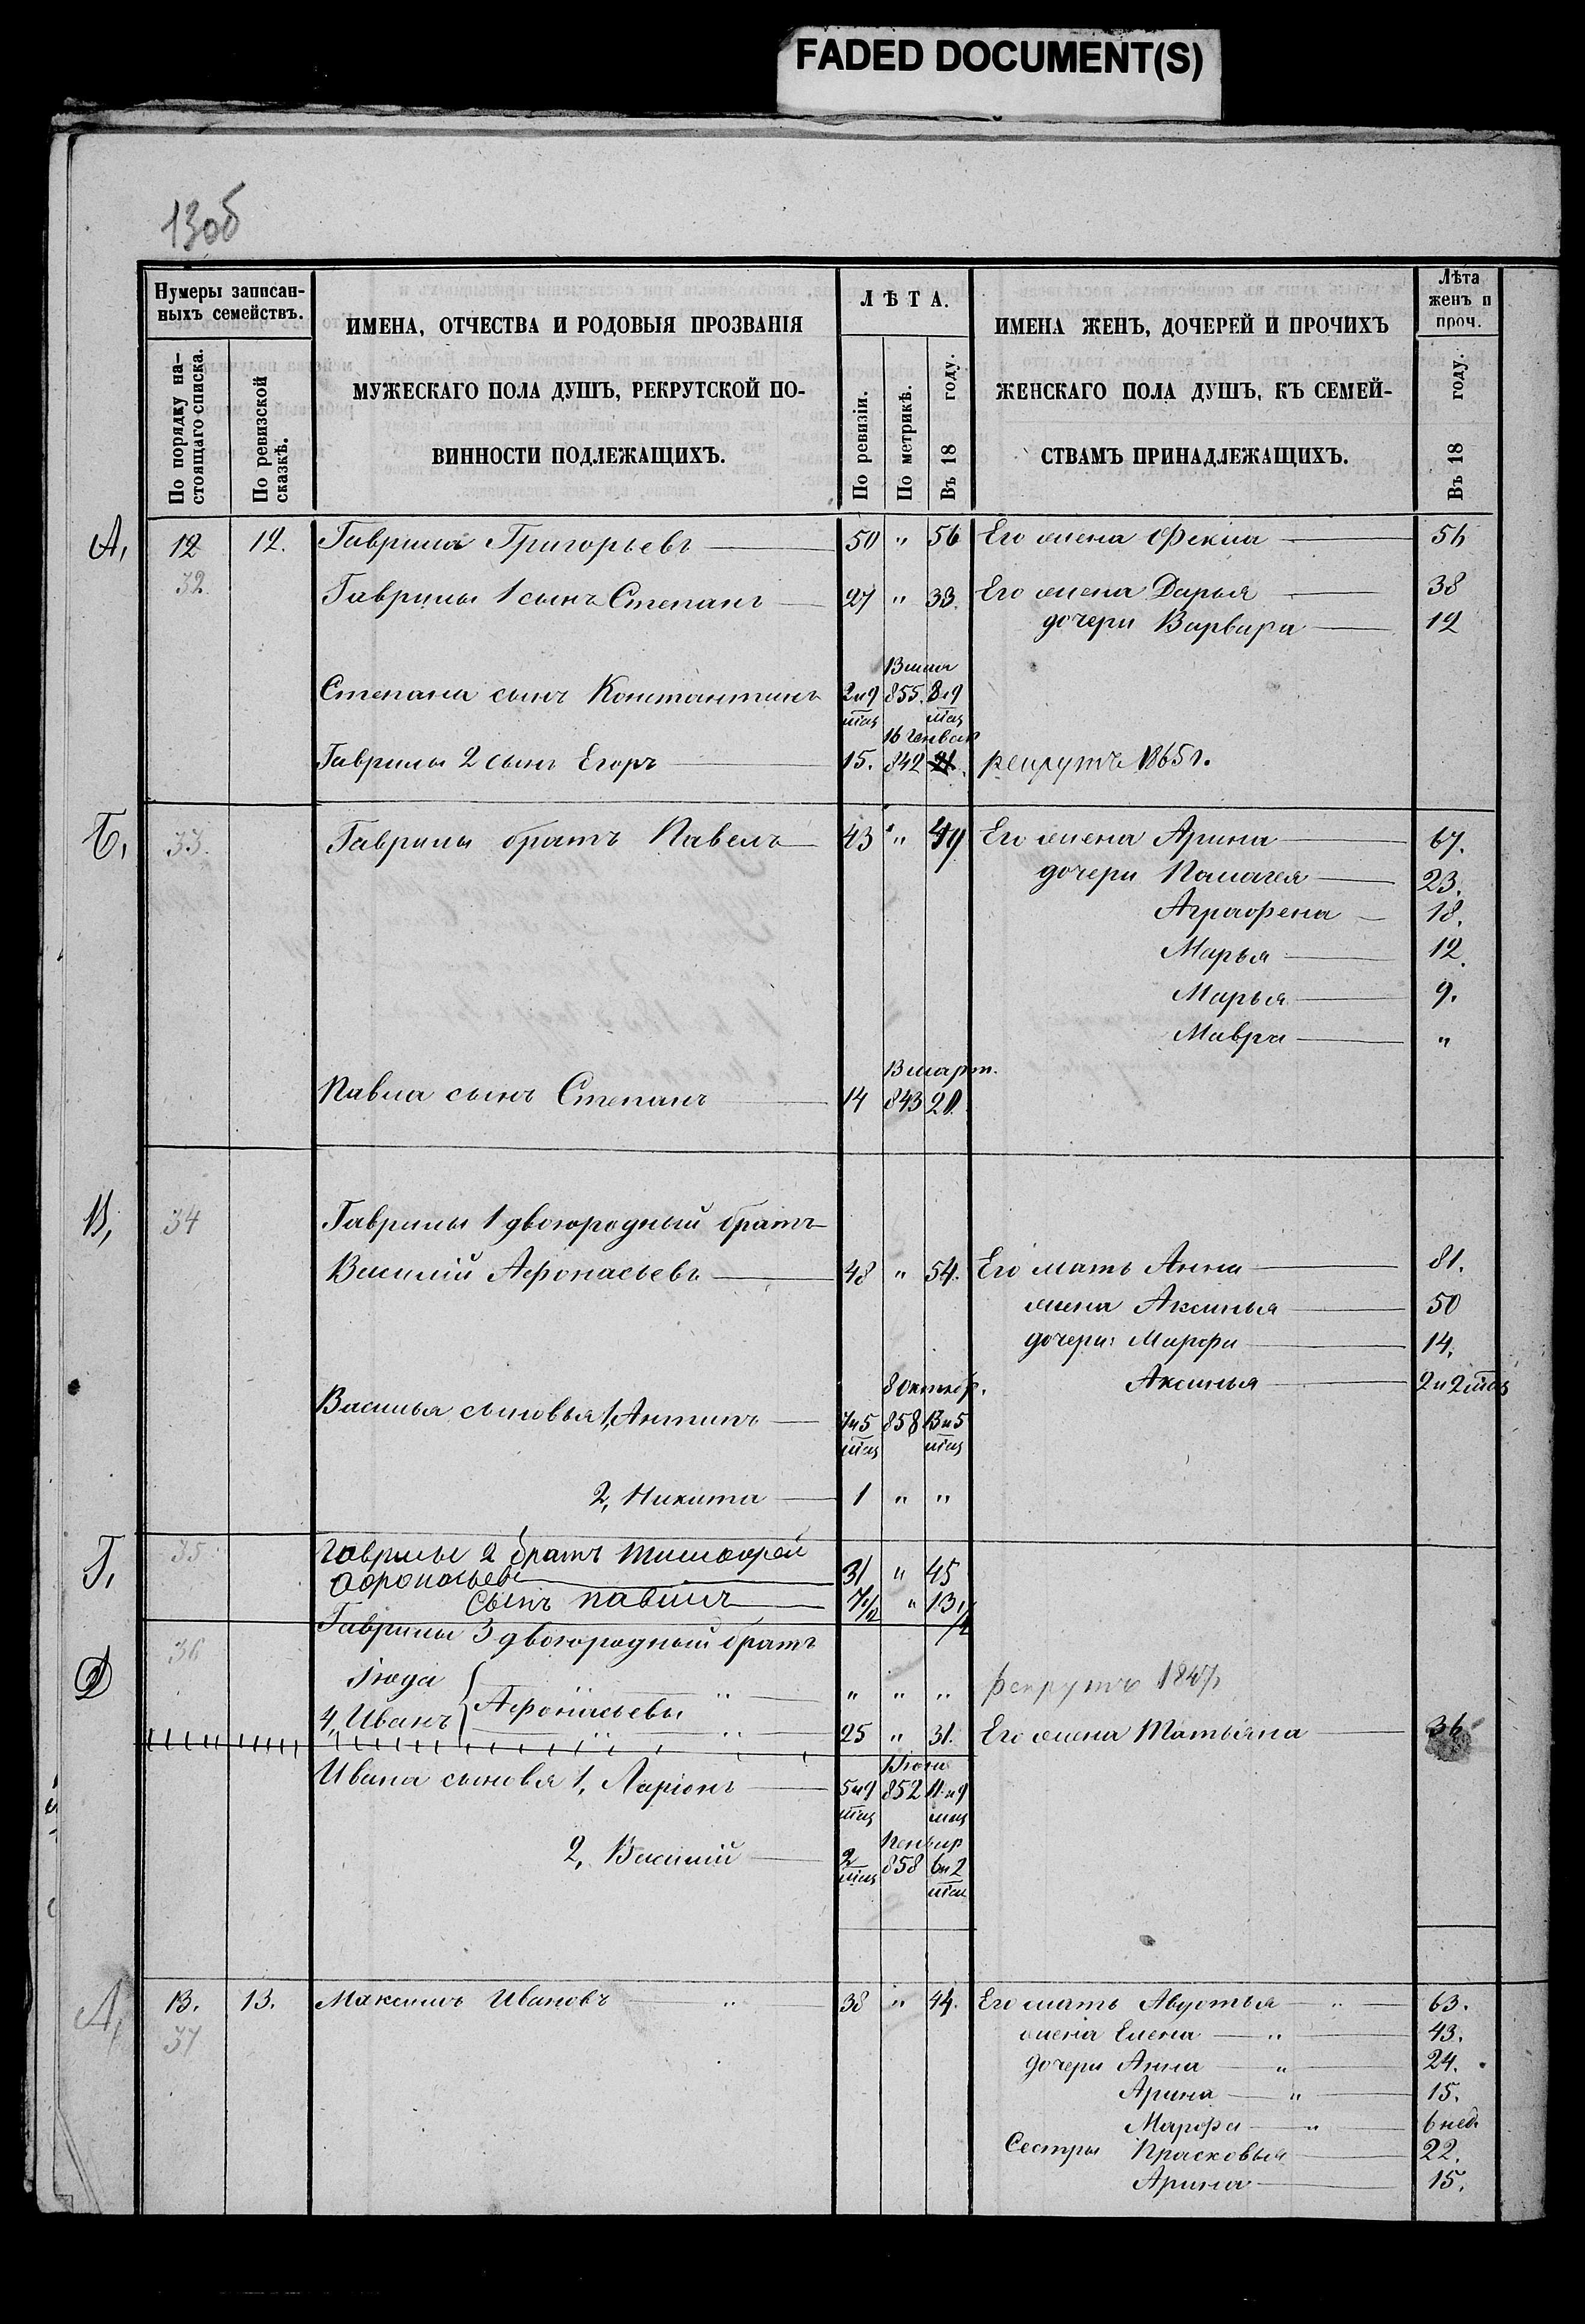 FADED DOCUMENT(S)
13об
Нумеры записан-
ныхъ семействъ.
По порядку на-
стоящаго списка.
По ревизской
сказкѣ.
ИМЕНА, ОТЧЕСТВА И РОДОВЫЯ ПРОЗВАНІЯ
МУЖЕСКАГО ПОЛА ДУШЪ, РЕКРУТСКОЙ ПО-
ВИННОСТИ ПОДЛЕЖАЩИХЪ.
ЛѢТА.
По ревизіи.
По метрикѣ.
Въ 18 году.
ИМЕНА ЖЕНЪ, ДОЧЕРЕЙ И ПРОЧИХЪ
ЖЕНСКАГО ПОЛА ДУШЪ, КЪ СЕМЕЙ-
СТВАМЪ ПРИНАДЛЕЖАЩИХЪ.
Лѣта
женъ и
проч.
Въ 18 году.
А, 12 12. Гаврила Григорьевъ 50 " 56 Его жена Фекла 56
32. Гаврилы 1 сынъ Степанъ 27 " 33. Его жена Дарья 38
дочери Варвара 12
Степана сынъ Константинъ 2 и 9 мѣс 855. 8 и 9 мѣс
16 Генвар
Гаврилы 2 сынъ Егоръ 15. 842 21. рекрутъ 1865 г.
Б, 33. Гаврилы братъ Павелъ 43 " 49 Его жена Арина 67.
дочери Палагея 23.
Аграфена 18.
Марья 12.
Марья 9.
Мавра "
13 март.
Павла сынъ Степанъ 14 843 20.
В, 34 Гаврилы 1 двоюродный братъ
Василій Афонасьевъ 48 " 54. Его мать Анна 81.
жена Аксинья 50
дочери: Марфа 14.
8 октябр. Аксинья 2 и 2 мѣс
Василья сыновья 1, Антипъ 7 и 5 мѣс 858 13 и 5 мѣс
2, Никита 1 " "
Г, 35 Гаврилы 2 братъ Тимофей
Афонасьевъ 31 " 45
сынъ 7 1/2 " 13 1/2
36 Гаврилы 3 двоюродный братъ
Д Іюда " " " рекрутъ 1847
4, Иванъ Афонасьевы 25 " 31. Его жена Татьяна 36
Ивана сыновья 1, Ларіонъ 5 и 9 мѣс 852 11 и 9 мѣс
2, Василій 2 мѣс 858 6 и 2 мѣс
А, 13. 13. Максимъ Ивановъ " 38 " 44. Его мать Авдотья " 63.
37 жена Елена " 43.
дочери Анна " 24.
Арина " 15.
Марфа " 6 нед.
Сестры Прасковья 22.
Арина 15.